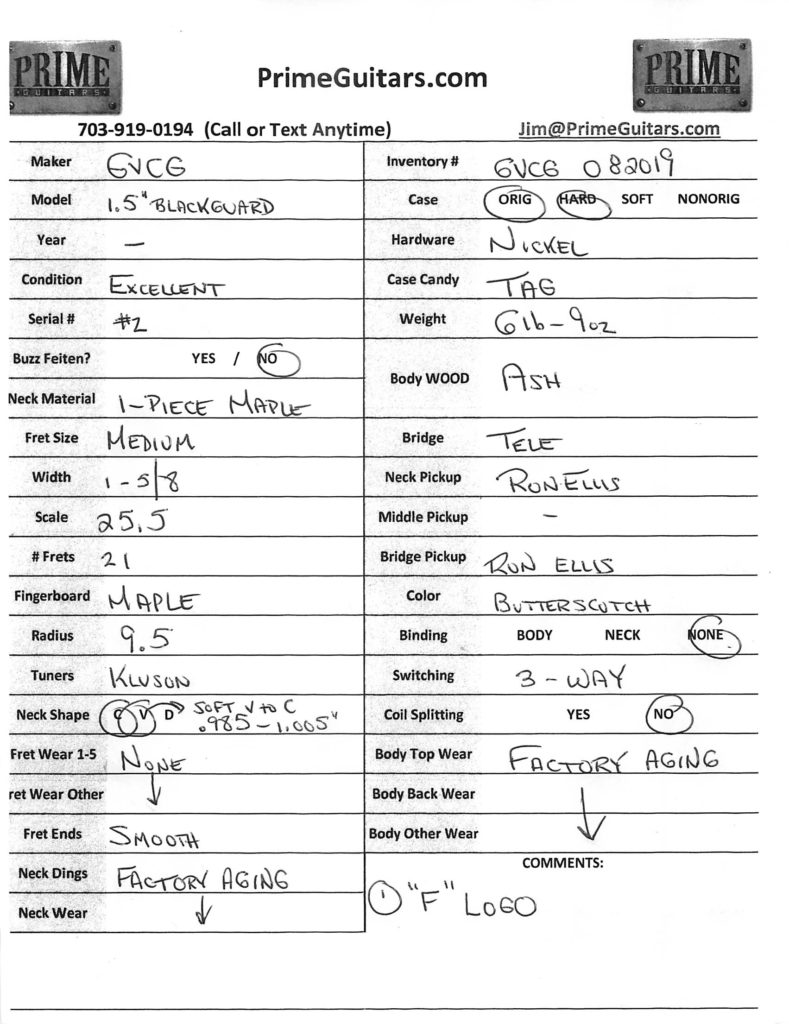 PRIME
GUITARS
PrimeGuitars.com
PRIME
GUITARS
703-919-0194 (Call or Text Anytime)
Jim@PrimeGuitars.com
Maker GVCG
Model 1.5" BLACKGUARD
Year —
Condition EXCELLENT
Serial # #2
Buzz Feiten? YES / NO
Neck Material 1-PIECE MAPLE
Fret Size MEDIUM
Width 1-5/8
Scale 25.5
# Frets 21
Fingerboard MAPLE
Radius 9.5
Tuners KLUSON
Neck Shape C V D → SOFT V to C
.985 - 1.005"
Fret Wear 1-5 NONE
ret Wear Other ↓
Fret Ends SMOOTH
Neck Dings FACTORY AGING
Neck Wear ↓
Inventory # GVCG 082019
Case ORIG HARD SOFT NONORIG
Hardware NICKEL
Case Candy TAG
Weight 6lb-9oz
Body WOOD ASH
Bridge TELE
Neck Pickup RON ELLIS
Middle Pickup —
Bridge Pickup RON ELLIS
Color BUTTERSCUTCH
Binding BODY NECK NONE
Switching 3-WAY
Coil Splitting YES NO
Body Top Wear FACTORY AGING
Body Back Wear
Body Other Wear ↓
COMMENTS:
① "F" LOGO